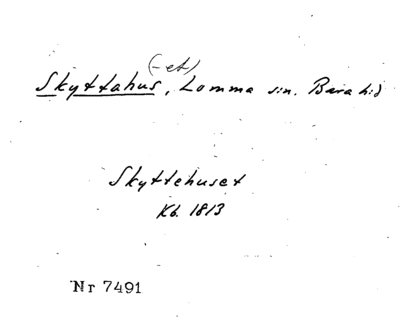 (-et)
Skyttahus, Lomma sn. Bara hd
Skyttehuset
Kb. 1813
Nr 7491